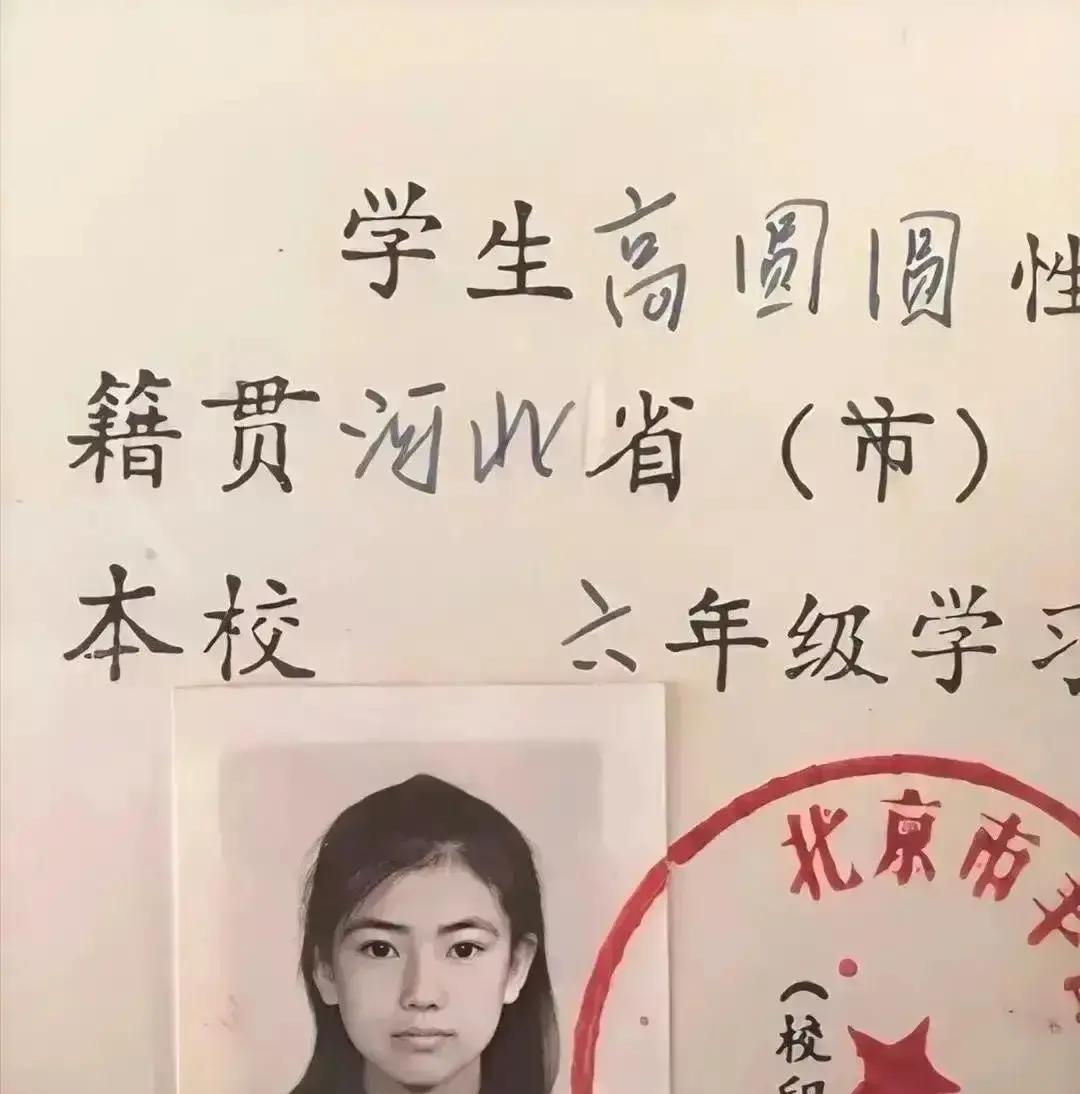 学生高圆圆性
籍贯河北省（市）
本校 六年级学习
北京市
（校印